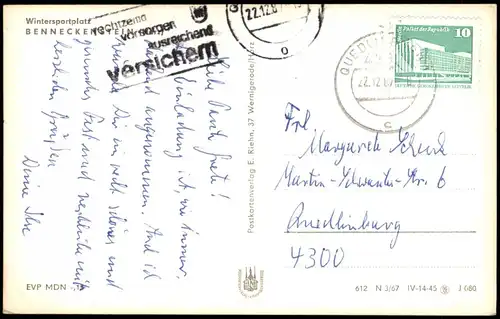 Wintersportplatz
BENNECKENSTEIN
rechtzeitig
vorsorgen
ausreichend
versichern
22.12.8
QUEDLI
22.12.8
Palast der Republik
10
Liebe
Einladung ist, wie immer,
angenommen. And ich
Dir ein recht schönes und
Fest und verbleibe mit
herzlichen Grüßen
Deine Ilse
Postkartenverlag E. Riehn, 37 Wernigerode/Harz
Frl.
Margarete
Martin-Schwantes-Str. 6
Quedlinburg
4300
EVP MDN
612 N 3/67 IV-14-45 J 080